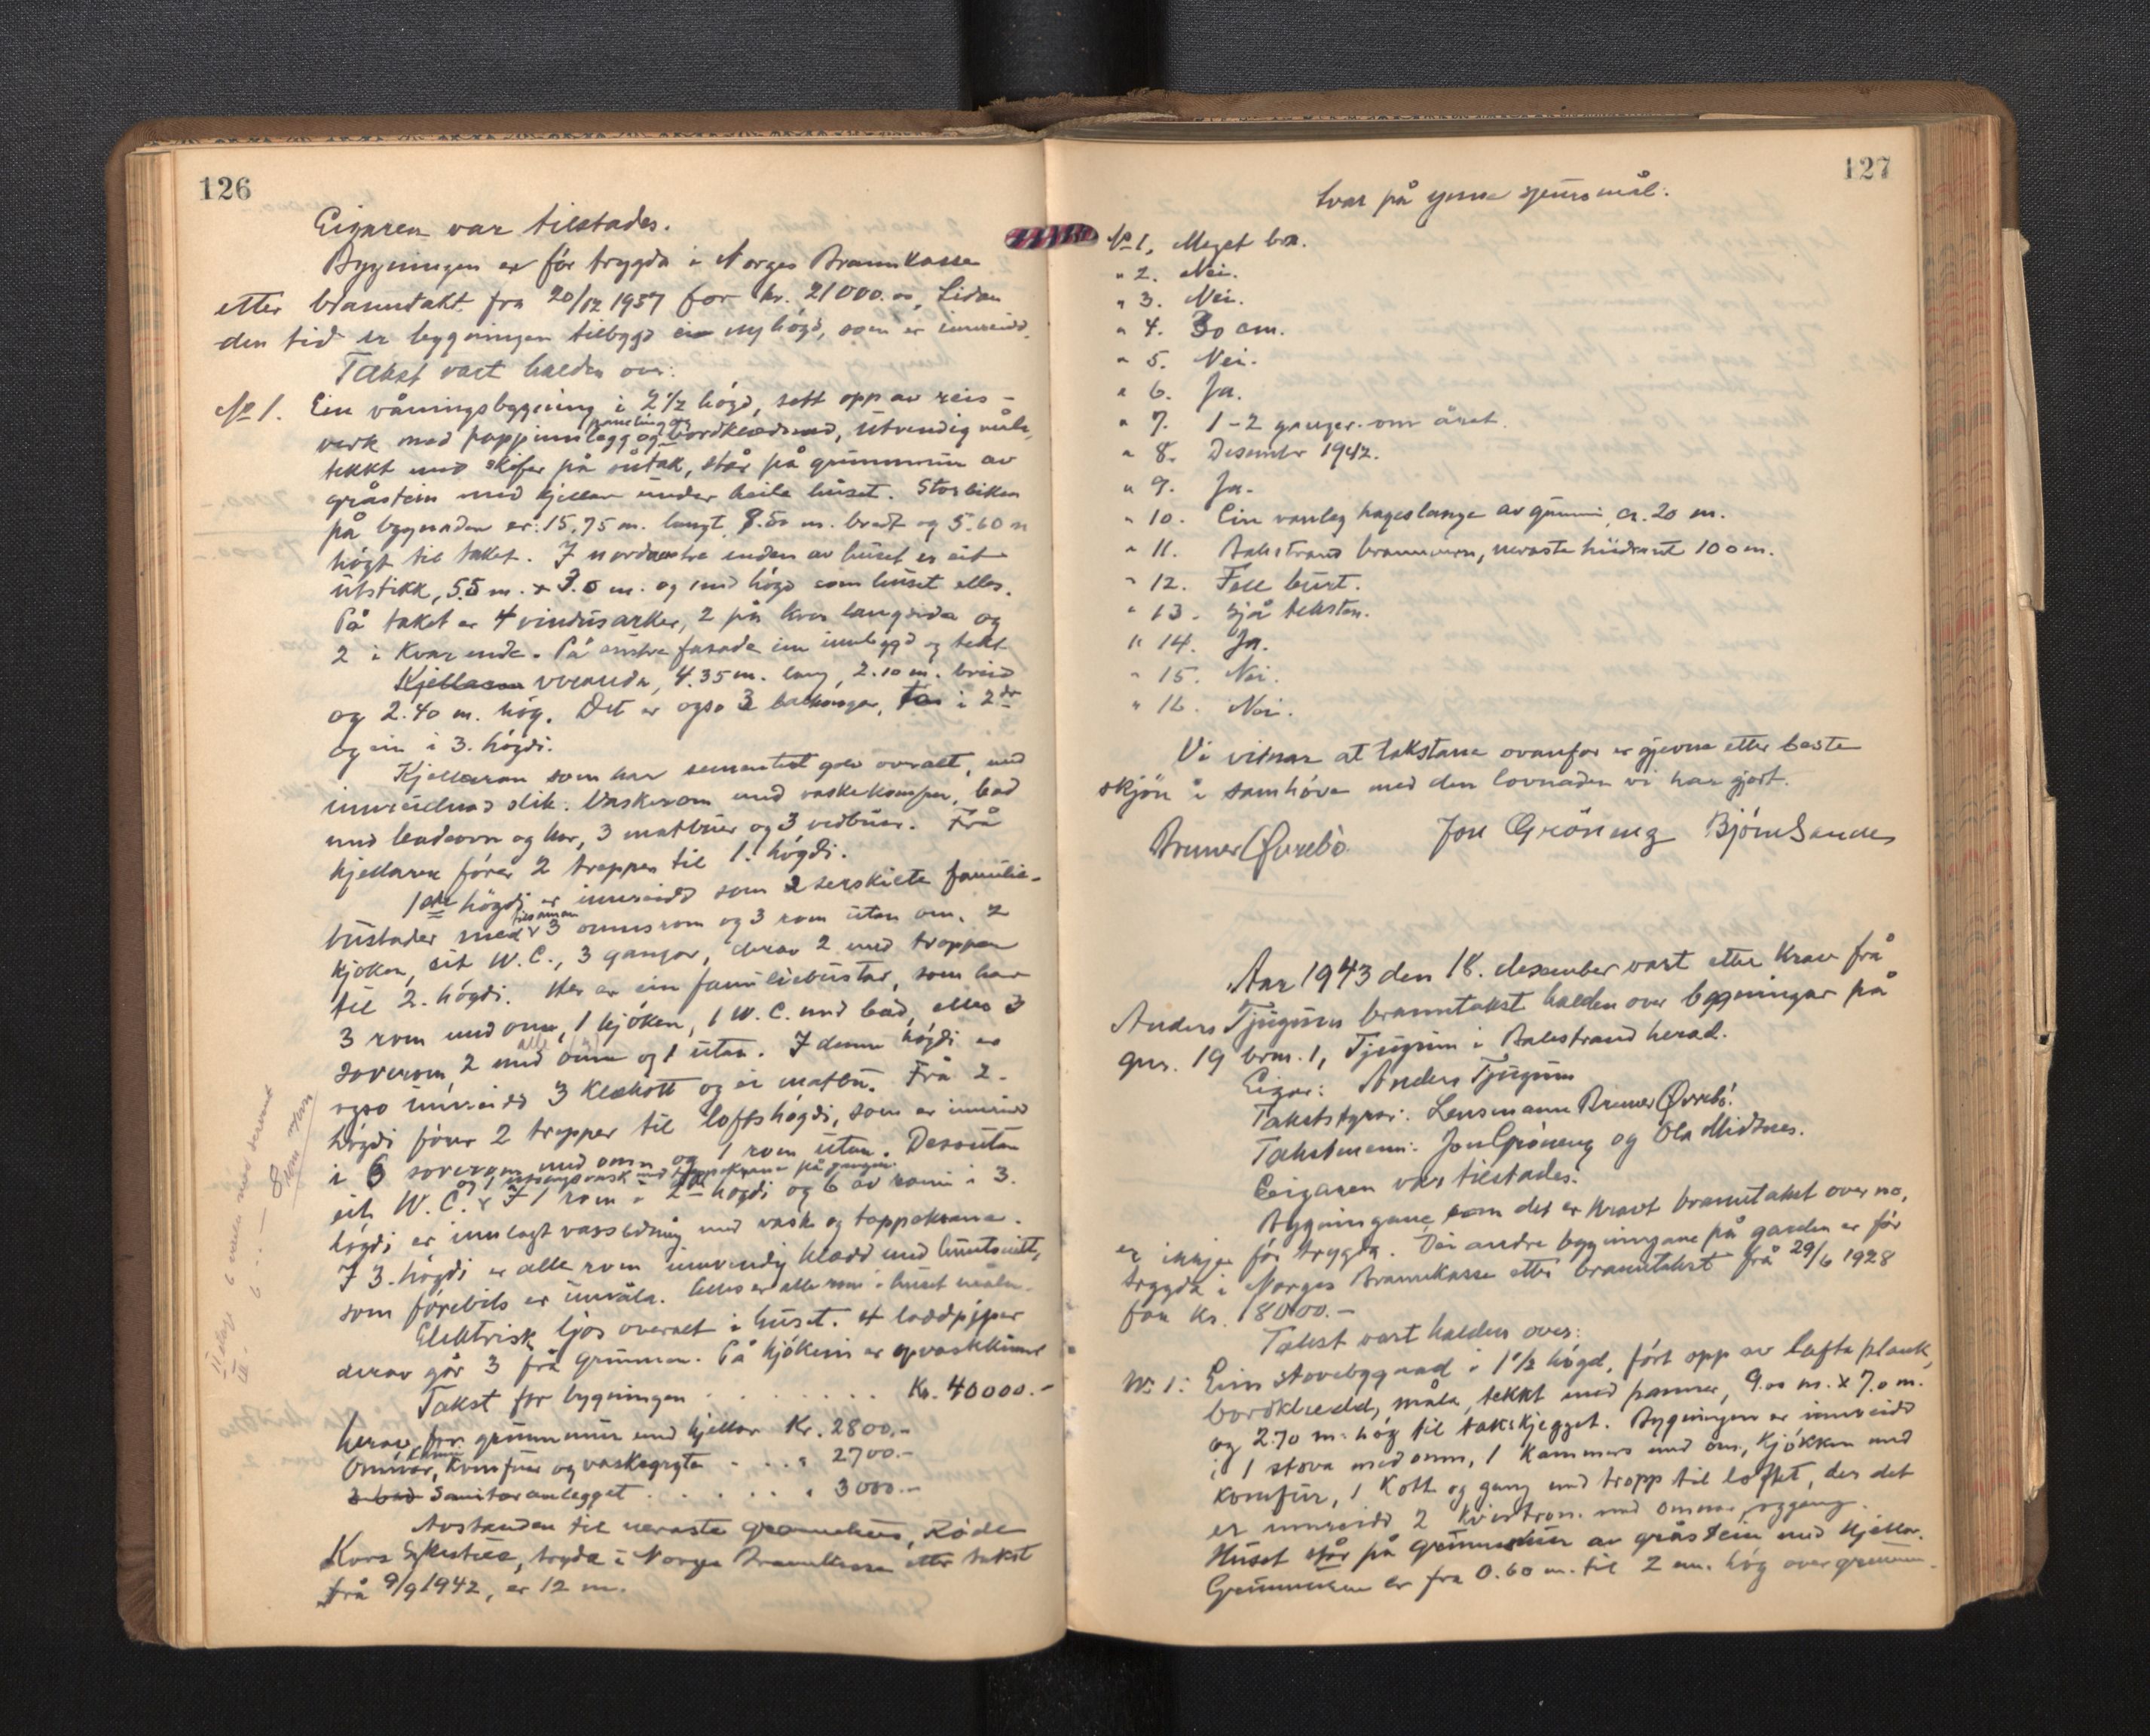 126
Eigaren var tilstades.
Bygningen er før trygda i Norges Brannkasse
etter branntakt fra 20/12 1937 for kr. 21000.00, Sidan
den tid er bygningen tilbygd ein ny högd, som er innreidd.
Takst vart halden over:
No 1. Ein våningsbygning i 2 1/2 högd, sett opp av reis-
verk med pappinnlegg og paneling og bordklædnad, utvendig måla,
tekkt med skifer på sútak, står på grunnmur av
gråstein med kjellar under heile huset. Storleiken
på bygnaden er: 15,75 m. langt 8.50 m. bredt og 5.60 m
högt til taket. I nordvestre enden av huset er eit
utstikk, 5.5 m. x 3.0 m. og med högd som huset elles.
På taket er 4 vindusarker, 2 på kvar langside og
2 i kvar ende. På fasade ein innbyggd og tekt
Kjellaren veranda, 4.35 m. lang, 2.10 m. breid
og 2.40 m. hög. Det er ogso 3 balkongar, to i 2dr
og ein i 3. högdi.
Kjellaren som har sementert golv overalt, med
innreidnad slik: Vaskerom med vaskekomfyr, bad
med badeovn og kar, 3 matbuer og 3 vedbuer. Frå
kjellaren förer 2 trapper til 1. högdi.
1ste högdi er innreidd som 2 serskilte familie-
bustader med tilsaman 3 omnsrom og 3 rom utan omn. 2
kjöken, eit W.C., 3 gangar, derav 2 med trappen
til 2. högdi. Her er ein familiebustad, som har
3 rom med omn, 1 kjöken, 1 W.C. med bad, elles 3
soverom, 2 med omn og 1 utan. I denne högdi er
ogso innreidd 3 klekott og ei matbu. Frå 2.
högdi förer 2 trapper til loftshögdi, som er innreidd
i 6 soverom med omn og 1 rom utan. Dessutan
eit W.C. og 1 med tappekrane på gangen.
I 1 rom i 2 högdi og 6 av romi i 3.
högdi er innlagt vassledning med vask og tappekrane.
I 3. högdi er alle rom innvendig klædd med
som förebils er umåla. Elles er alle rom i huset måla.
Elektrisk ljos overalt i huset. 4 loddpiper
derav går 3 frå grunnen. På kjökeni er opvaskkummer
Takst for bygningen . . . . . . Kr. 40000.-
herav for grunnmur med kjellar Kr. 2800.-
Omnar, komfurer og vaskegryte . . . 2700.-
2 bad Sanitæranlegget . . . . . . 3000.-
Avstanden til næraste grannehus, Röde
Kors Sykestue, trygda i Norges Brannkasse etter takst
frå 9/9 1942, er 12 m.
127
Svar på ymse spursmål:
No 1. Meget bra.
" 2. Nei.
" 3. Nei.
" 4. 30 cm.
" 5. Nei.
" 6. Ja.
" 7. 1-2 ganger om året.
" 8. Desember 1942.
" 9. Ja.
" 10. Ein vanleg hageslange av gummi, ca. 20 m.
" 11. Balestrand brannvern, næraste hydrant 100 m.
" 12. Fell burt.
" 13. Sjå teksten.
" 14. Ja.
" 15. Nei.
" 16. Nei.
Vi vitnar at takstane ovanfor er gjevne etter beste
skjön i samhöve med den lovnaden vi har gjort.
Brumer Øvrebö Jon Gröneng Björn Sandes
Aar 1943 den 18. desember vart etter krav frå
Anders Tjugum branntakst halden over bygningar på
gnr. 19 brn. 1, Tjugum i Balestrand herad.
Eigar: Anders Tjugum
Takststyrar: Lensmann Brumer Øvrebö.
Takstmenn: Jon Gröneng og Ola Midtnes.
Eigaren var tilstades.
Bygningane som det er kravt branntakst over no,
er inkje før trygda. Dei andre bygningane på garden er før
trygda i Norges Brannkasse etter branntakst frå 29/6 1928
for kr. 18000.-
Takst vart halden over:
No 1: Ein stovebygnad i 1 1/2 högd, fört opp av lafta plank,
bordkledd, måla, tekkt med panner, 9.00 m. x 7.0 m.
og 2.70 m. hög til takskjegget. Bygningen er innreidd
i 1 stova med omn, 1 kammers med omn, kjökken med
komfur, 1 kott og gang med tropp til loftet, der det
er innreidd 2 kvistrom med omnar og gang.
Huset står på grunnmur av gråstein med kjellar.
Grunnmuren er fra 0.60 m. til 2 m. hög over grunnen.